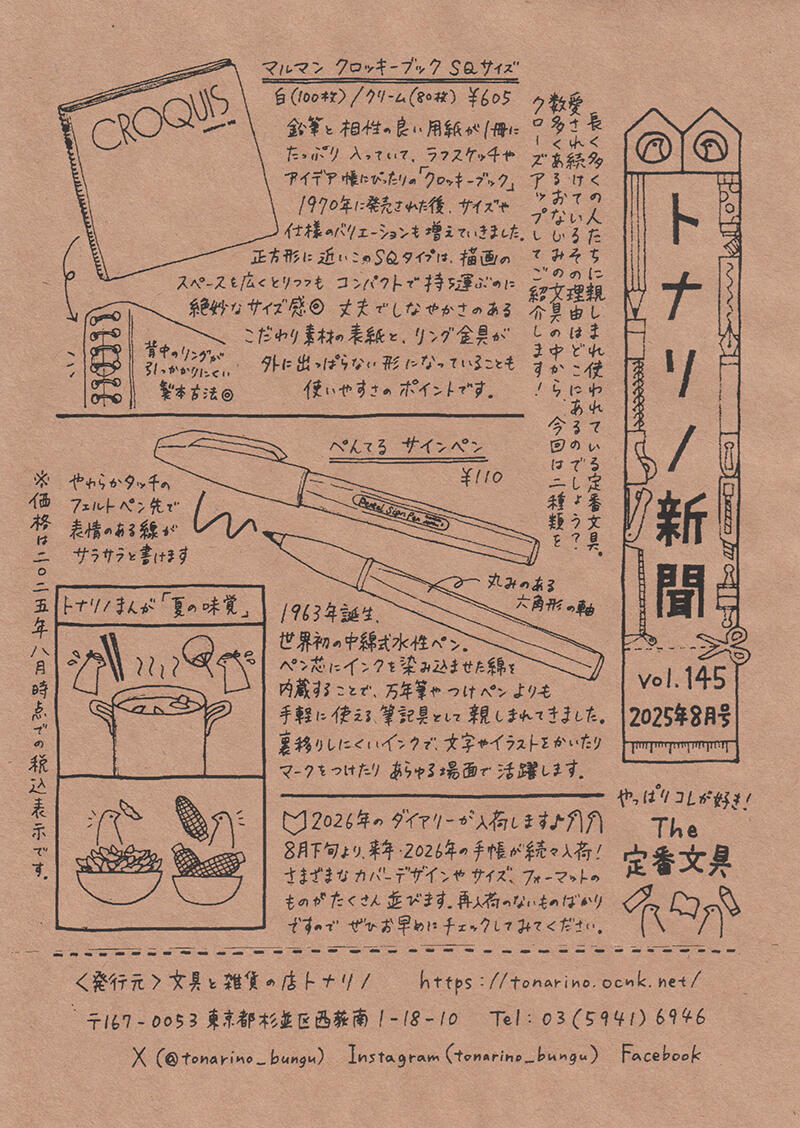 トナリノ新聞
vol.145
2025年8月号
やっぱりコレが好き!
The
定番文具
長く多くの人たちに親しまれ使われている定番文具。
愛され続けているその理由はどこにあるのでしょう?
数多くあるおなじみの文具の中から、今回は二種類を
クローズアップしてご紹介します!
マルマン クロッキーブック SQサイズ
白(100枚)/クリーム(80枚) ¥605
鉛筆と相性の良い用紙が1冊に
たっぷり入っていて、ラフスケッチや
アイデア帳にぴったりの「クロッキーブック」
1970年に発売された後、サイズや
仕様のバリエーションも増えていきました。
正方形に近いこのSQタイプは、描画の
スペースを広くとりつつも コンパクトで持ち運ぶのに
絶妙なサイズ感◎ 丈夫でしなやかさのある
こだわり素材の表紙と、リング金具が
外に出っぱらない形になっていることも
使いやすさのポイントです。
CROQUIS
背中のリングが
引っかかりにくい
製本方法◎
ぺんてる サインペン
¥110
Pentel Sign Pen
やわらかタッチの
フェルトペン先で
表情のある線が
サラサラと書けます
丸みのある
六角形の軸
1963年誕生、
世界初の中綿式水性ペン。
ペン芯にインクを染み込ませた綿を
内蔵することで、万年筆やつけペンよりも
手軽に使える筆記具として親しまれてきました。
裏移りしにくいインクで、文字やイラストをかいたり
マークをつけたり あらゆる場面で活躍します。
※価格は二〇二五年八月時点での税込表示です。
トナリノまんが「夏の味覚」
2026年のダイアリーが入荷します♪
8月下旬より、来年・2026年の手帳が続々入荷!
さまざまなカバーデザインやサイズ、フォーマットの
ものがたくさん並びます。再入荷のないものばかり
ですので ぜひお早めにチェックしてみてください。
<発行元>文具と雑貨の店トナリノ https://tonarino.ocnk.net/
〒167-0053 東京都杉並区西荻南1-18-10 Tel:03(5941)6946
X (@tonarino_bungu) Instagram (tonarino_bungu) Facebook